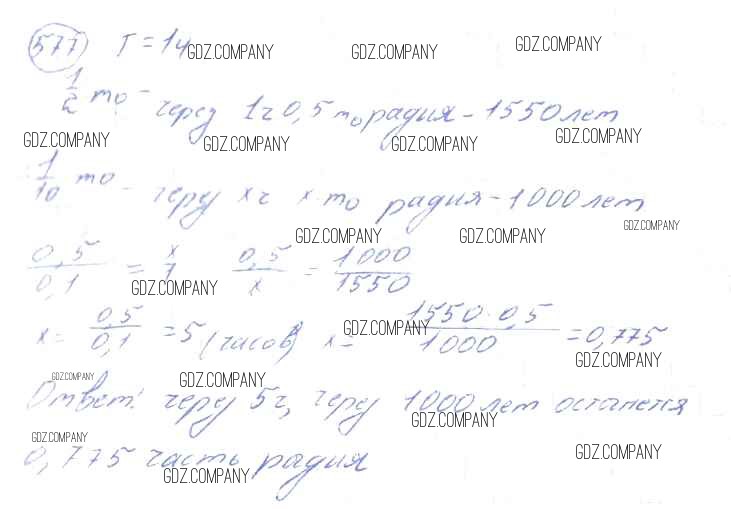 577 T = 1ч GDZ.COMPANY GDZ.COMPANY GDZ.COMPANY
1/2 m₀ - через 1ч 0,5 m₀ радия - 1550 лет
GDZ.COMPANY GDZ.COMPANY GDZ.COMPANY GDZ.COMPANY
1/10 m₀ - через xч x m₀ радия - 1000 лет
GDZ.COMPANY GDZ.COMPANY GDZ.COMPANY
0,5/0,1 = x/1 0,5/x = 1000/1550
GDZ.COMPANY
x = 0,5/0,1 = 5 (часов) x = 1550·0,5/1000 = 0,775
GDZ.COMPANY GDZ.COMPANY
GDZ.COMPANY GDZ.COMPANY
Ответ: через 5ч, через 1000 лет останется
GDZ.COMPANY
GDZ.COMPANY GDZ.COMPANY
0,775 часть радия
GDZ.COMPANY